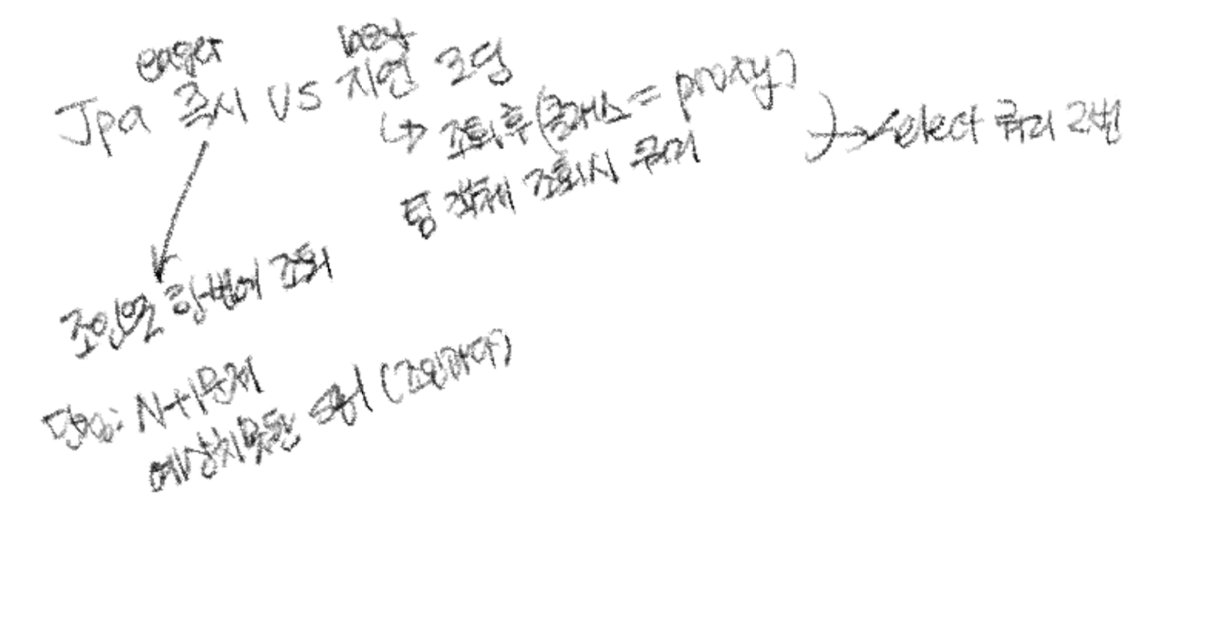 eager lazy
Jpa 즉시 vs 지연 로딩
↳ 조회후 (클래스 = proxy)
팀 객체 조회시 쿼리
→ select 쿼리 2번
조인으로 한번에 조회
단점: N+1문제
예상치못한 SQL (조인마다)